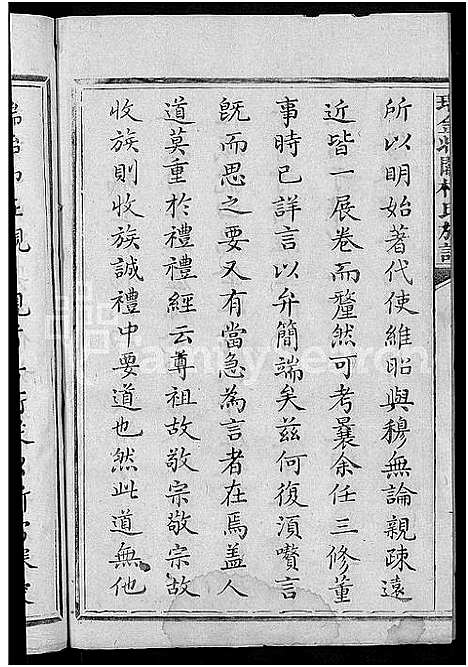 所以明始著代使維昭與穆無論親疎遠
近皆一展卷而釐然可考曩余任三修董
事時已詳言以弁簡端矣兹何復湏嘖言
既而思之要又有當急為言者在焉盖人
道莫重於禮禮經云尊祖故敬宗敬宗故
收族則收族誠禮中要道也然此道無他